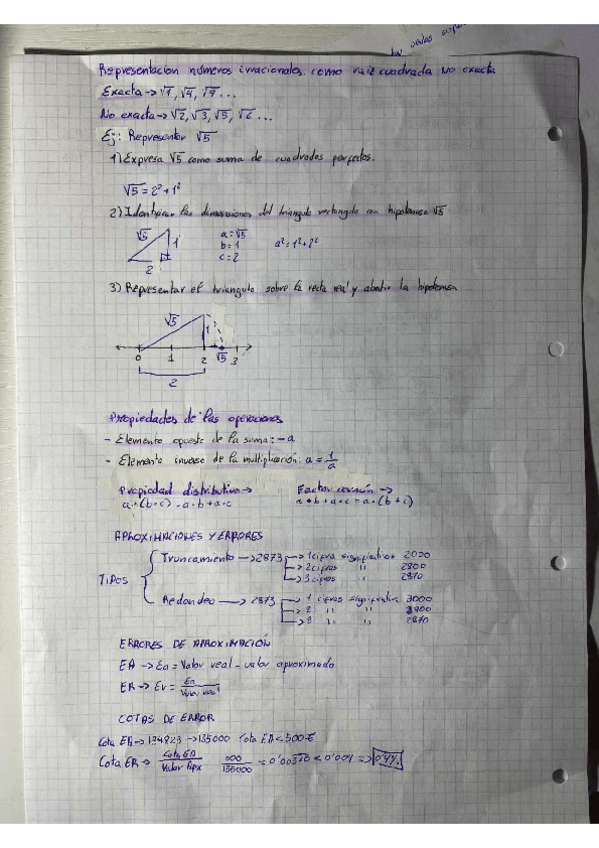 Representación números irracionales como raíz cuadrada no exacta
Exacta → √1, √4, √9 ...
No exacta → √2, √3, √5, √6 ...
Ej: Representar √5
1) Expresa √5 como suma de cuadrados perfectos.
√5 = 2² + 1²
2) Identificar las dimensiones del triángulo rectángulo con hipotenusa √5
√5 1 2
a = √5
b = 1
c = 2
a² = 1² + 2²
3) Representar el triángulo sobre la recta real y abatir la hipotenusa
√5 1
0 1 2 √5 3
2
Propiedades de las operaciones
- Elemento opuesto de la suma: -a
- Elemento inverso de la multiplicación: a = 1/a
Propiedad distributiva →
a·(b+c) = a·b+a·c
Factor común →
a·b+a·c = a·(b+c)
APROXIMACIONES Y ERRORES
TIPOS
Truncamiento → 2873 → 1 cifra significativa 2000
→ 2 cifras " 2800
→ 3 cifras " 2870
Redondeo → 2873 → 1 cifras significativa 3000
→ 2 " " 2900
→ 3 " " 2870
ERRORES DE APROXIMACIÓN
EA → Ea = Valor real - valor aproximado
ER → Er = Ea / Valor real
COTAS DE ERROR
Cota EA → 134823 → 135000 Cota EA < 500€
Cota ER → Cota EA / Valor Apx 500 / 135000 = 0'00370 < 0'004 => 0'4%.